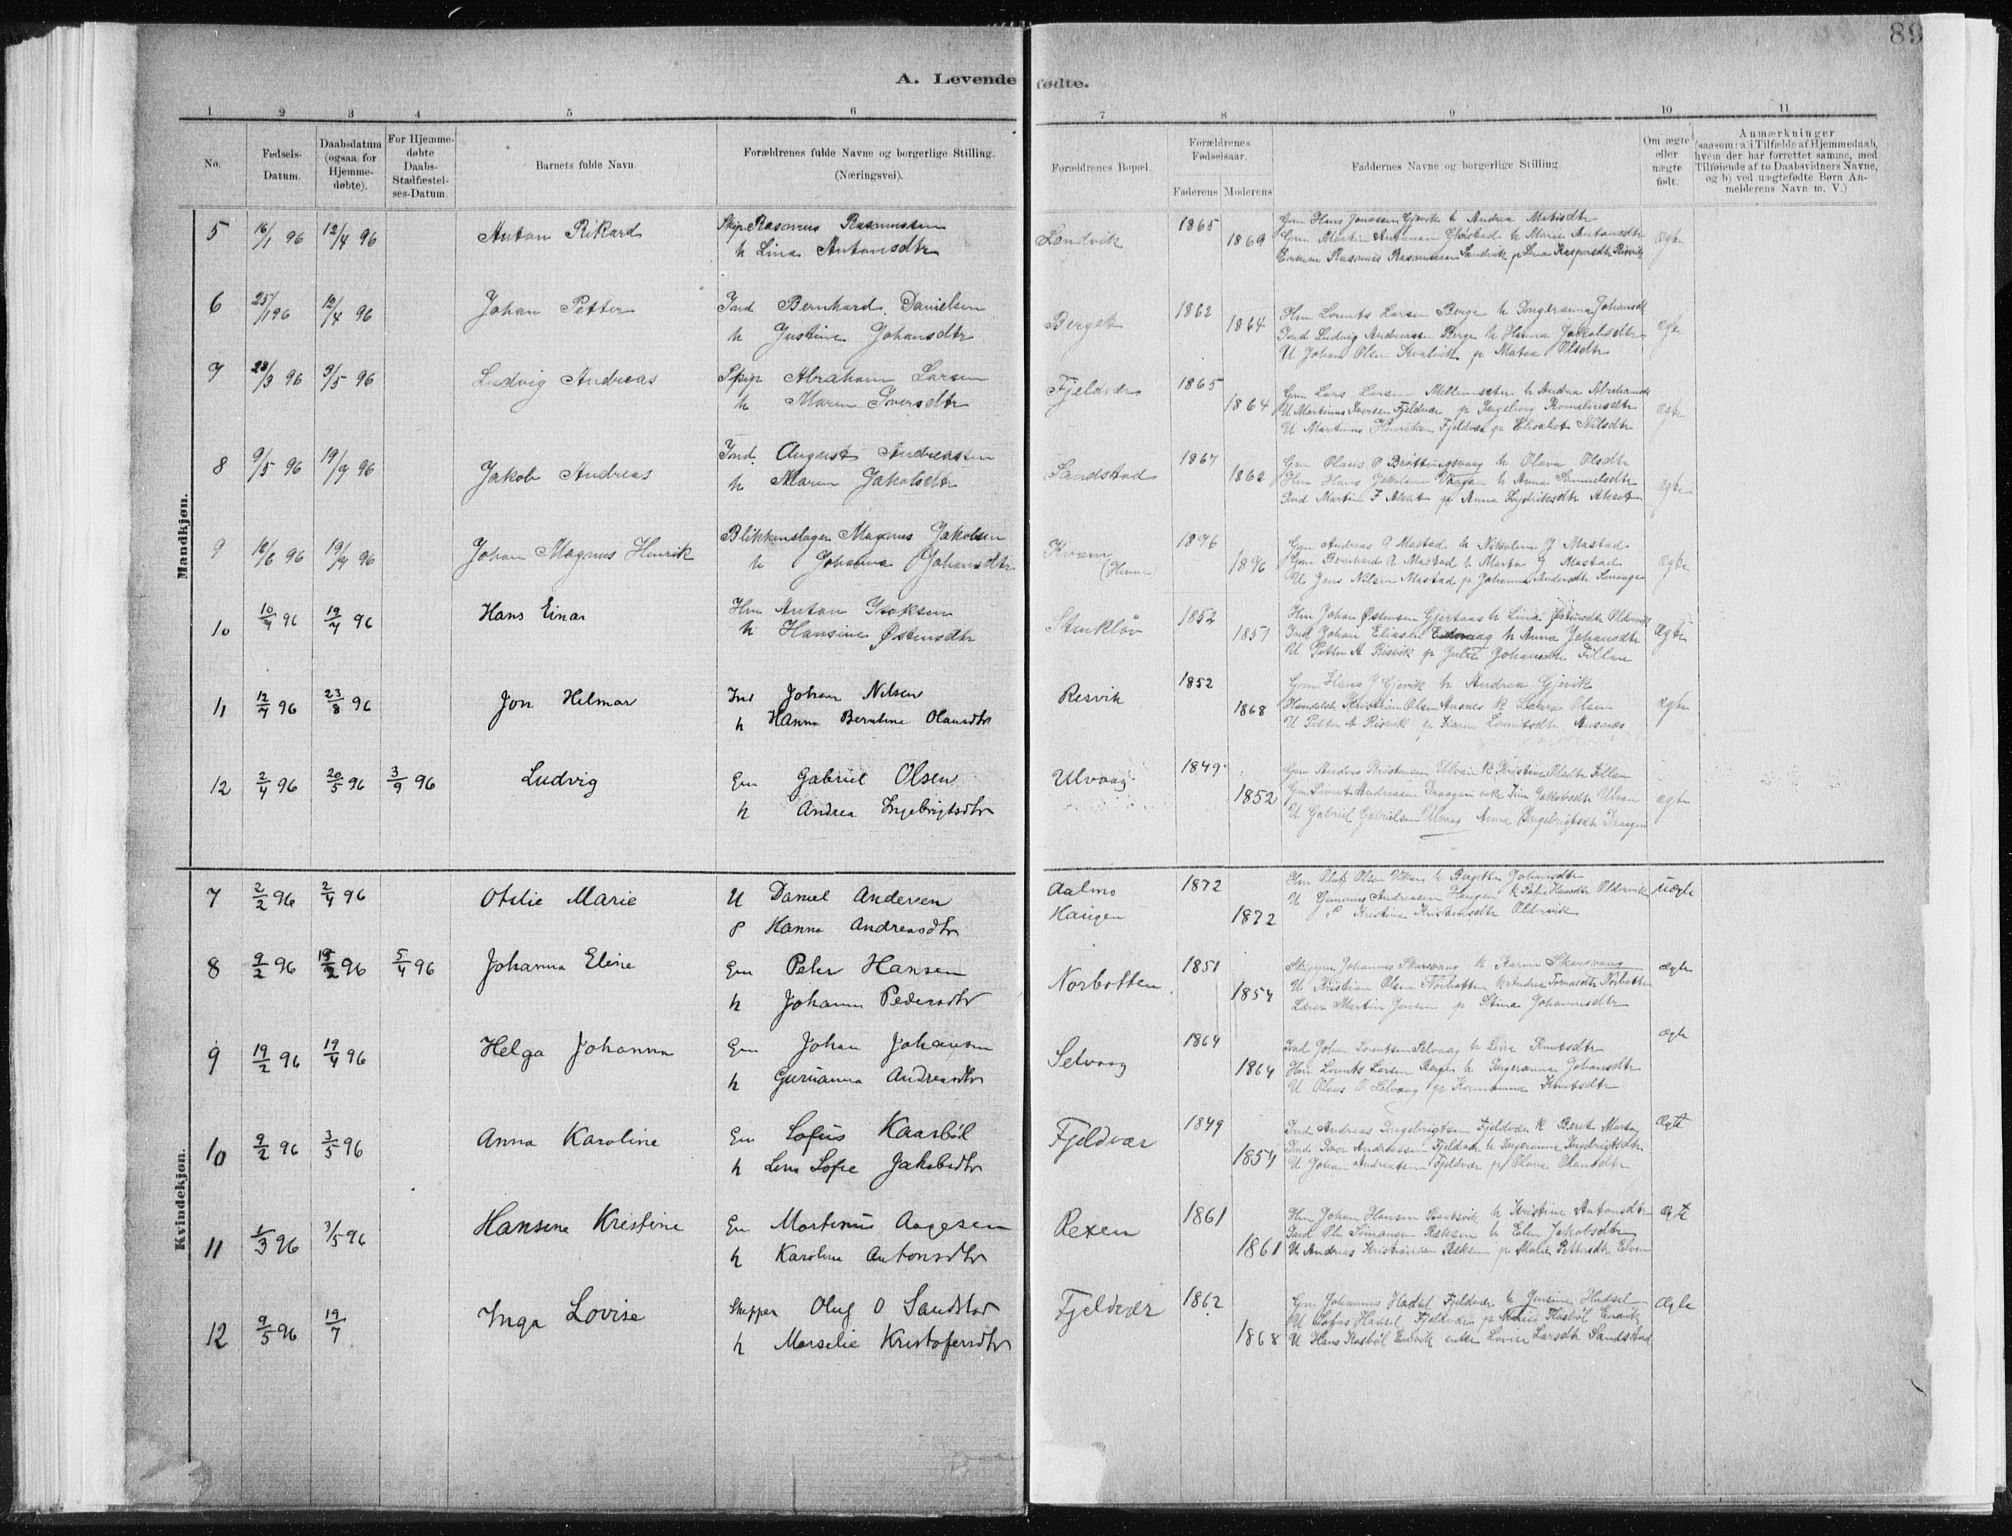 89
A. Levende fødte.
1 2 3 4 5 6 7 8 9 10 11
No.
Fødsels-Datum.
Daabsdatum (ogsaa for Hjemme-døbte).
For Hjemme-døbte Daabs-Stadfæstel-ses-Datum.
Barnets fulde Navn.
Forældrenes fulde Navne og borgerlige Stilling. (Næringsvei).
Forældrenes Bopæl.
Forældrenes Fødselsaar.
Faderens Moderens
Faddernes Navne og borgerlige Stilling.
Om ægte eller uægte født.
Anmærkninger
(saasom: a) i Tilfælde af Hjemmedaab, hvem der har forrettet samme, med Tilføiende af to Daabsvidners Navne, og b) ved uægtefødte Børn An-melderens Navn m. V.)
Mandkjøn.
5 16/1 96 12/4 96 Anton Rikard Skip Rasmus Rasmussen Sandvik 1865 Gm Hans Jonssen Gjevik h Andrea Matisdtr
h Lina Antonsdtr 1869 Gm Martin Antonsen h Marie Antonsdtr ægte
Rasmus Rasmussen Sandvik
6 25/1 96 12/4 96 Johan Petter Ind Bernhard Danielsen Berget 1862 Hm Lorents Larsen Berge h Ingeranna Johansdt
h Justine Johansdtr 1864 Ind Ludvig Andreassen Berge h Hanna Jakobsdtr ægte
U Johan Olsen Kvalvik p Matea Olsdtr
7 28/3 96 3/5 96 Ludvig Andreas Skip Abraham Larsen Fjeldvær 1865 Gm Lars Larsen h Andrea
h Maren Iversdtr 1864 U Martinus Iversen Fjeldvær p Ingeborg ægte
U Martinus Henriksen Fjeldvær p Elisabet Nilsdtr
8 9/5 96 19/9 96 Jakob Andreas Ind. August Andreassen Sandstad 1867 Gm Olaus O Brattingsvaag h Olava Olsdtr
h Maren Jakobsdtr 1862 Hm Hans Jakobsen h Anna Samuelsdtr ægte
Ind Martin F Akset p Anna Akset
9 16/6 96 19/7 96 Johan Magnus Henrik Blikkenslager Magnus Jakobsen Kvam (Hevne) 1896 Gm Andreas A Mastad h Nikoline J Mastad
h Johanna Johansdtr 1896 Gm Bernhard A Mastad h Marta J Mastad ægte
U Jens Nilsen Mastad p Johanna Andersdtr
10 10/7 96 19/7 96 Hans Einar Hm Anton Isaksen Stenkløv 1852 Hm Johan Østensen Gjertaas h Lina Østensdtr Oldervik
h Hansine Østensdtr 1857 Ind Johan Eliassen h Anna Johansdtr Ægte
U Petter A Risvik p Julie Johansdtr Fillan
11 12/7 96 23/8 96 Jon Helmar Ind Johan Nilsen Resvik 1852 Gm Hans J Gjevik h Andrea Gjevik
h Hanna Berntine Olausdtr 1868 Handelsb. Kristian Olsen Ansnes h Laura Olsen ægte
U Petter A Risvik p Karen Lorntsdtr Ansnes
12 2/4 96 20/5 96 3/9 96 Ludvig Gm Gabriel Olsen Ulvaag 1849 Gm Anders Kristensen Ulvan h Kristine Fillan
h Andrea Ingebrigtsdtr 1852 Gm Andreasen Draagen enke Jakobsdtr Ulvan ægte
U Gabriel Gabrielsen Ulvaag Anna Ingebrigtsdtr Draagen
Kvindekjøn.
7 2/2 96 2/4 96 Otilie Marie U Daniel Andersen Aalmo 1872 Hm Oluf Olsen h Bergitte Johansdtr uægte
P Hanna Andreasdtr Haugen 1872 U Andreasen Haugen Hansdtr Oldervik
P Kristine Kristensdtr Oldervik
8 9/2 96 19/2 96 5/4 96 Johanna Eline Gm Peter Hansen Norbotten 1851 Skipper Johannes Skarsvaag h Karen Skarsvaag ægte
h Johanna Pedersdtr 1854 U Kristian Olsen Norbotten h Andrea Tomasdtr Norbotten
Lærer Martin Jensen p Stina Johannesdtr
9 19/2 96 19/4 96 Helga Johanna Gm Johan Johansen Selvaag 1864 Ind Johan Lorentsen Selvaag h Lina Knutsdtr ægte
h Gurianna Andreasdtr 1864 Hm Lorents Larsen Berget h Ingeranna Johansdtr
U Olaus O Selvaag p Knutsdtr
10 9/2 96 3/5 96 Anna Karoline Gm Lofus Kaarbøl Fjeldvær 1849 Ind Andreas Ingebrigtsen Fjeldvær h Berit Marta Ægte
h Lena Sofie Jakobsdtr 1854 Ind Iver Andreassen Fjeldvær h Ingeranna Ingebrigtsdtr
U Johan Andreassen Fjeldvær p Olava Olausdtr
11 1/3 96 3/5 96 Hansena Kristine Gm Martinus Aagesen Rexen 1861 Hm Johan Hansen h Kristine Antonsdtr Ægte
h Karoline Antonsdtr 1861 Ind Ole Simonsen Reksen h Elen Jakobsdtr
U Andreas Kristiansen Reksen p Malie Pettersdtr
12 9/5 96 19/7 Inga Lovise Skipper Oluf O Sandstad Fjeldvær 1862 Gm Johannes Hadsel Fjeldvær h Jensine Hadsel Ægte
h Marselie Kristofersdtr 1868 U Lofus Hadsel Fjeldvær p Kasbøl
U Hans Kasbøl enke Lovise Larsdtr Sandstad